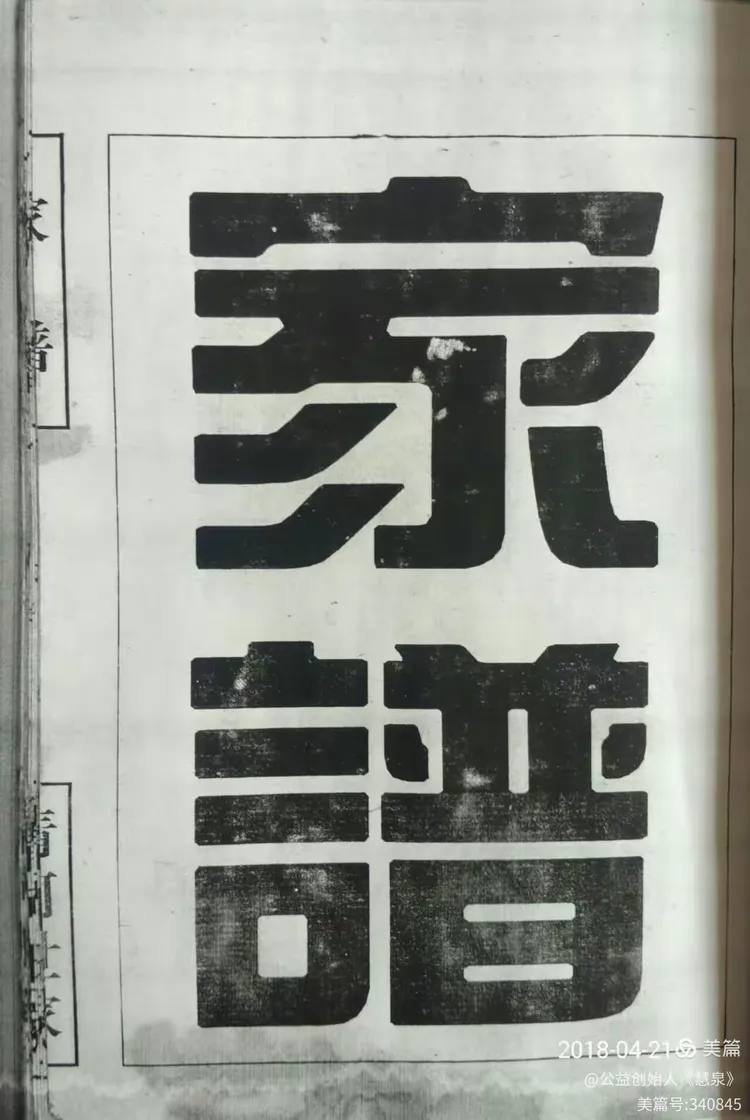 家譜
家譜
清河
2018-04-21 美篇
@公益创始人《慧泉》
美篇号:340845